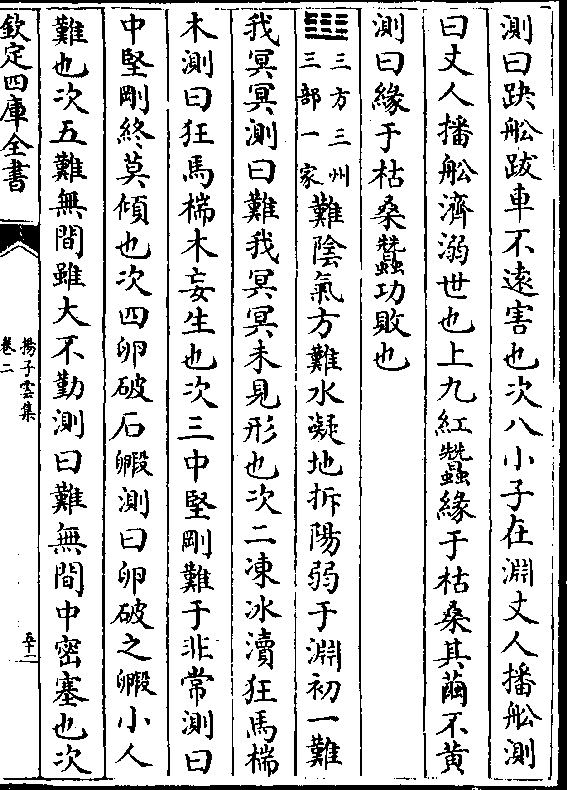 測曰趹船跋車不遠害也次八小子在淵丈人播船測
曰丈人播船濟溺世也上九紅蠶緣于枯桑其繭不黃
測曰緣于枯桑蠶功敗也
三方三州
三部一家
難陰氣方難水凝地拆陽弱于淵初一難
我冥冥測曰難我冥冥未見形也次二凍冰瀆狂馬椯
木測曰狂馬椯木妄生也次三中堅剛難于非常測曰
中堅剛終莫傾也次四卵破石毈測曰卵破之毈小人
難也次五難無間雖大不勤測曰難無間中密塞也次
欽定四庫全書
揚子雲集
卷二
五十二